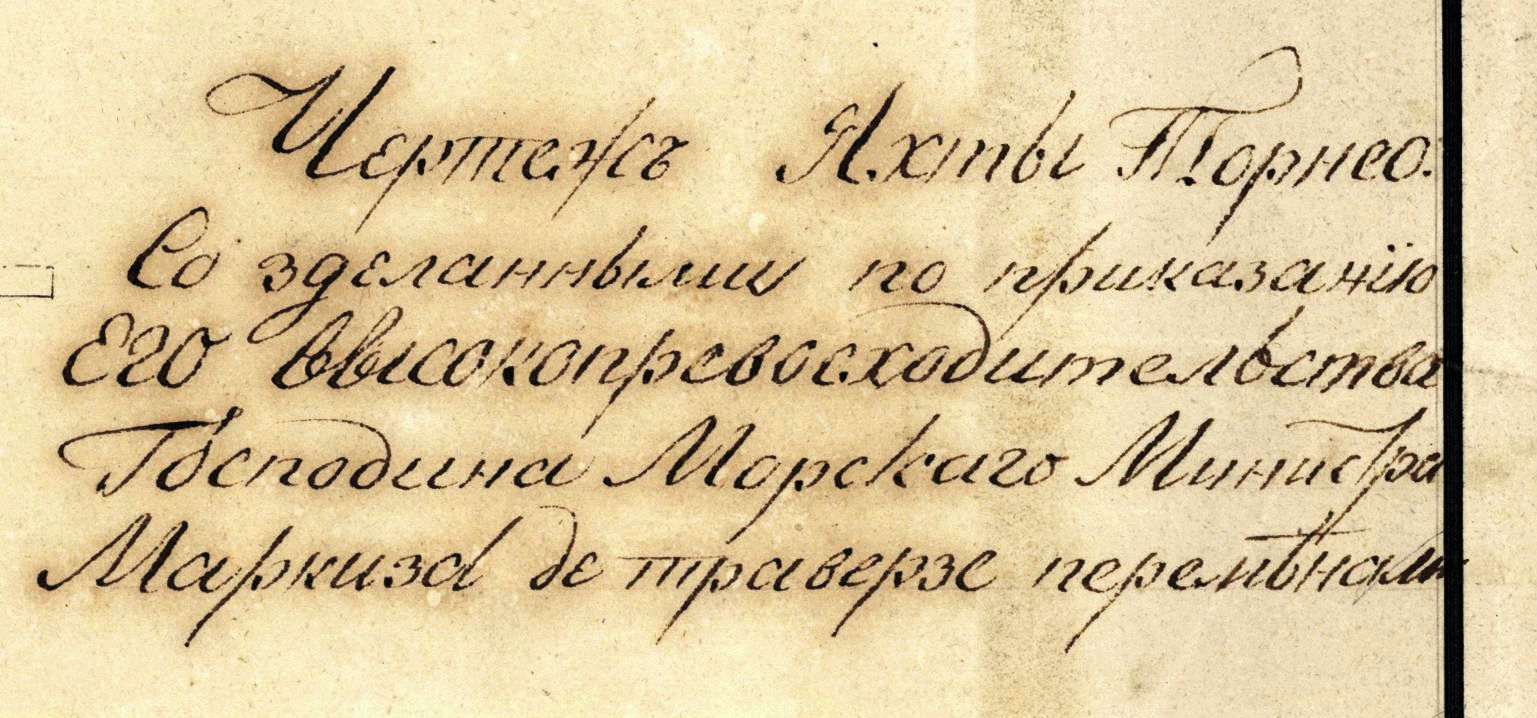 Чертежъ Яхты Торнео.
Со зделанными по приказанїю
Его Высокопревосходительства
Господина Морскаго Министра
Маркиза де траверзе перемѣнами